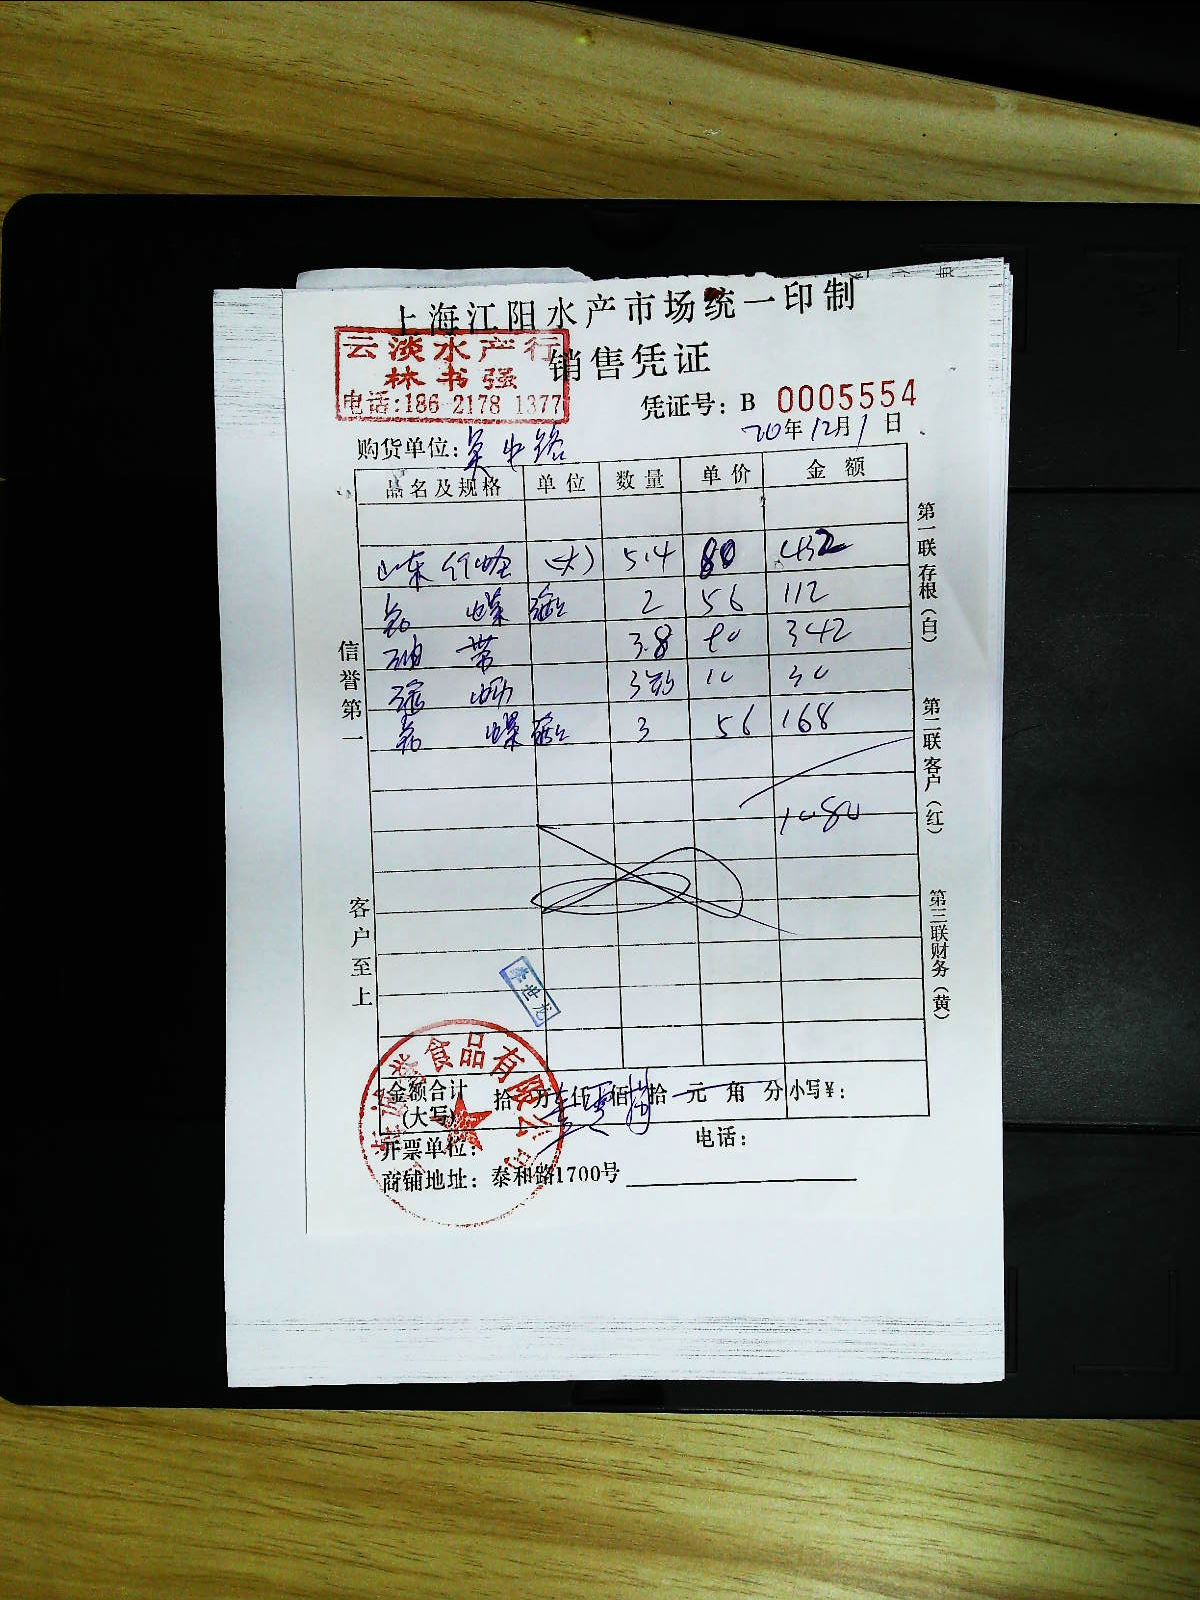 上海江阳水产市场统一印制
销售凭证
云淡水产行
林书强
电话:186 2178 1377
凭证号: B 0005554
20年12月1日
购货单位:
品名及规格 单位 数量 单价 金额
山东 (大) 5.4 80 432
螺 2 56 112
带 3.8 90 342
3 10 30
螺 3 56 168
1080
信誉第一
客户至上
第一联存根(白)
第二联客户(红)
第三联财务(黄)
李世龙
食品有限公司
金额合计(大写) 拾 万 仟 佰 拾 元 角 分 小写¥:
开票单位: 电话:
商铺地址: 泰和路1700号